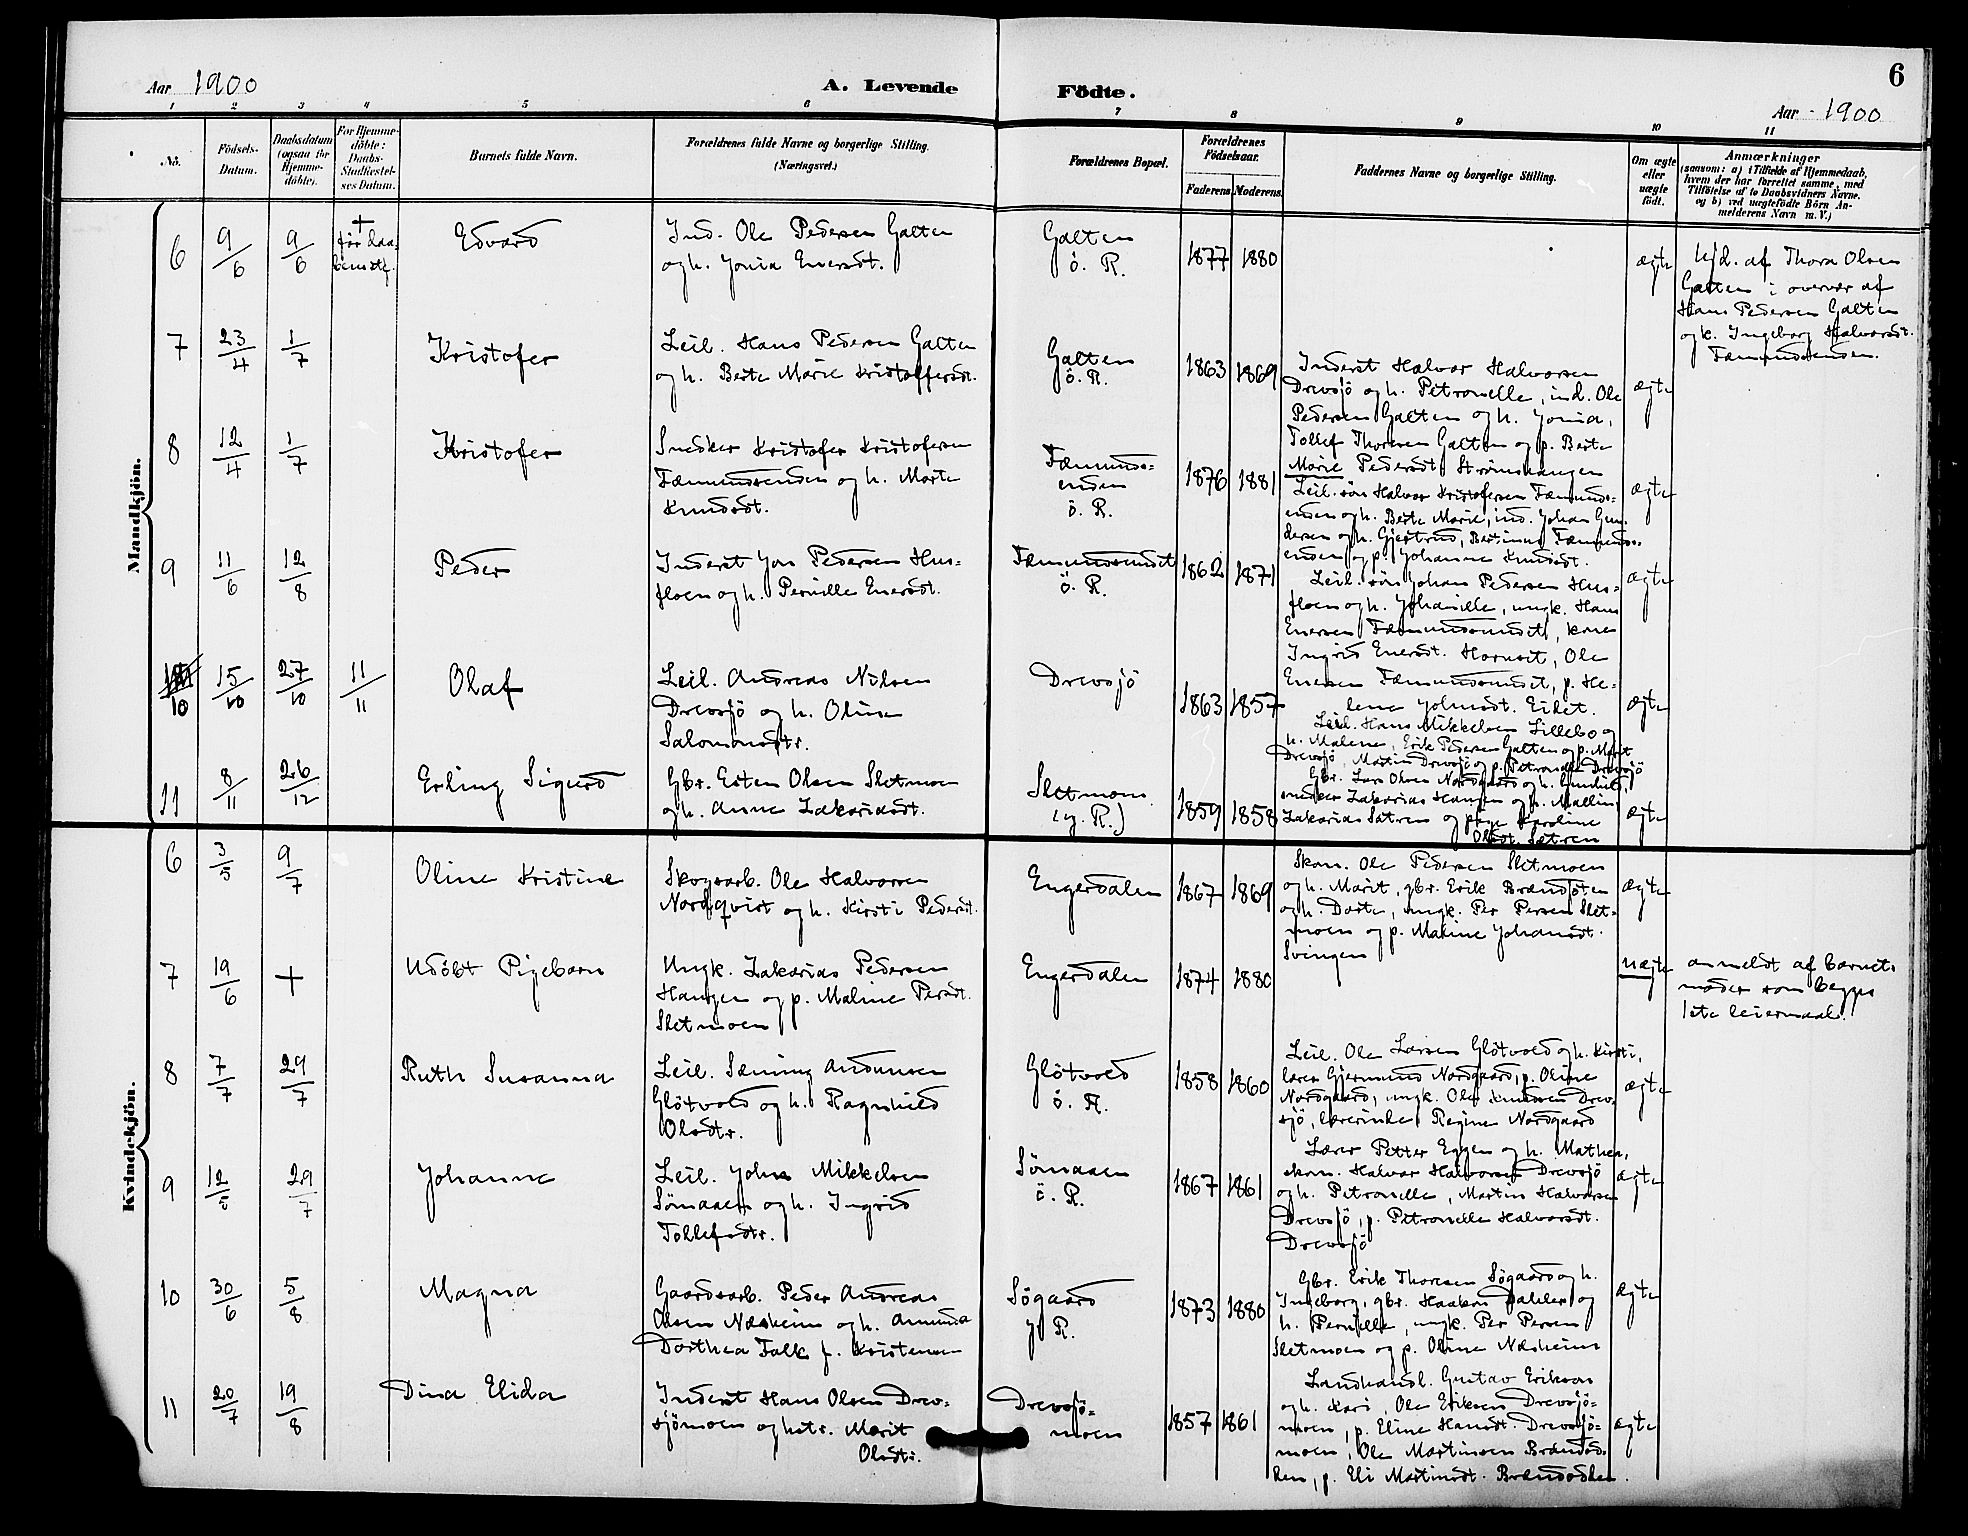 6
Aar 1900
A. Levende Födte.
Aar 1900
1 2 3 4 5 6 7 8 9 10 11
No.
Födsels-
Datum.
Daabsdatum
(ogsaa for
Hjemme-
döbte).
For Hjemme-
döbte:
Daabs-
Stadfæstel-
ses Datum.
Barnets fulde Navn.
Forældrenes fulde Navne og borgerlige Stilling.
(Næringsvei.)
Forældrenes Bopæl.
Forældrenes
Födselsaar.
Faderens. Moderens.
Faddernes Navne og borgerlige Stilling.
Om ægte
eller
uægte
födt.
Anmærkninger
(saasom: a) i Tilfælde af Hjemmedaab,
hvem der har forrettet samme, med
Tilföielse af to Daabsvidners Navne.
og b) ved uægtefödte Börn An-
melderens Navn m. V.)
Mandkjön.
6
9/6
9/6
+
før daa-
Edvard
Ind. Ole Pedersen Galten
og h. Jonia Enersdt.
Galten
ö. R.
1877 1880
ægte
Hjd. af Thora Olsen
Galten i overvær af
Hans Pedersen Galten
og k. Ingeborg Halvorsdt.
Fæmundsenden.
7
23/4
1/7
Kristofer
Leil. Hans Pedersen Galten
og h. Berte Marie Kristoffersdt.
Galten
ö. R.
1863 1869
Inderst Halvor Halvorsen
Drevsjö og h. Petronelle, ind. Ole
Pedersen Galten og h. Jonia,
Tollef Thoresen Galten og p. Berte
Marie Pedersdt. Strømshaugen
ægte
8
12/4
1/7
Kristofer
Snedker Kristofer Kristofersen
Fæmundsenden og h. Marte
Knudsdt.
Fæmunds-
enden
ö. R.
1876 1881
Leil. sön Halvor Kristofersen Fæmunds-
enden og h. Berte Marie, ind. Johan Gun-
dersen og h. Gjertrud, Bertinus Fæmunds-
enden og p. Johanne Knudsdt.
ægte
9
11/6
12/8
Peder
Inderst Jon Pedersen Hus-
floen og h. Pernille Enersdt.
Fæmundsundet
ö. R.
1862 1871
Leil. sön Johan Pedersen Hus-
floen og h. Johanille, ungk. Hans
Enersen Fæmundsundet, kone
Ingrid Enersdt. Hornset, Ole
Enersen Fæmundsundet, p. He-
lene Johnsdt. Eidet.
ægte
10
15/10
27/10
11/11
Olaf
Leil. Andreas Nilsen
Drevsjö og h. Oline
Salomonsdtr.
Drevsjö
1863 1857
Leil. Hans Mikkelsen Lillebo og
h. Malene, Erik Pedersen Galten og p. Marit
Drevsjö, Martin Drevsjö og p. Petronelle Drevsjö
ægte
11
8/11
26/12
Erling Sigurd
Gbr. Esten Olsen Sletmoen
og h. Anne Zakariasdt.
Sletmoen
(y. R.)
1859 1858
Gbr. Lars Olsen Nordgaard og h. Gunhild,
snedker Zakarias Haugen og h. Mallin,
Zakarias Sætren og pige Karoline
Olsdt. Sætren
ægte
Kvindekjön.
6
3/5
9/7
Oline Kristine
Skogsarb. Ole Halvorsen
Nordqvist og h. Kirsti Pedersdt.
Engerdalen
1867 1869
Skom. Ole Pedersen Sletmoen
og h. Marit, gbr. Erik Brændsten
og h. Dorte, ungk. Per Persen Slet-
moen og p. Maline Johansdt.
Svingen
ægte
7
19/6
+
Udöbt Pigebarn
Ungk. Zakarias Pedersen
Haugen og p. Maline Persdt.
Sletmoen
Engerdalen
1874 1880
uægte
anmeldt af barnets
moder som begges
1ste leiermaal.
8
7/7
29/7
Ruth Susanna
Leil. Sæming Andersen
Glötvold og h. Ragnhild
Olsdtr.
Glötvold
ö. R.
1858 1860
Leil. Ole Larsen Glötvold og h. Kirsti,
lærer Gjermund Nordgaard, p. Oline
Nordgaard, ungk. Ole Knudsen Drev-
sjö, lærerinde Regine Nordgaard
ægte
9
12/5
29/7
Johanne
Leil. John Mikkelsen
Sömaaen og h. Ingrid
Tollefsdtr.
Sömaaen
ö. R.
1867 1861
Lærer Petter Eggen og h. Mathea,
skom. Halvor Halvorsen Drevsjö
og h. Petronelle, Martin Halvorsen
Drevsjö, p. Petronelle Halvorsdt.
Drevsjö
ægte
10
30/6
5/8
Magna
Gaardsarb. Peder Andreas
Olsen Næsheim og h. Amunda
Dorthea Falk f. Kristensen
Sögaard
y R.
1873 1880
Gbr. Erik Thoresen Sögaard og h.
Ingeborg, gbr. Haakon Dahlen og
h. Pernille, ungk. Per Persen
Sletmoen og p. Oline Næsheim
ægte
11
20/7
19/8
Dina Elida
Inderst Hans Olsen Drev-
sjömoen og hstr. Marit
Olsdtr.
Drevsjö-
moen
1857 1861
Landhandl. Gustav Erikson
og h. Kari, Ole Eriksen Drevsjö-
moen, p. Eline Hansdt. Drevsjö-
moen, Ole Martinsen Brændod-
den, p. Eli Martinsdt. Brændodden.
ægte